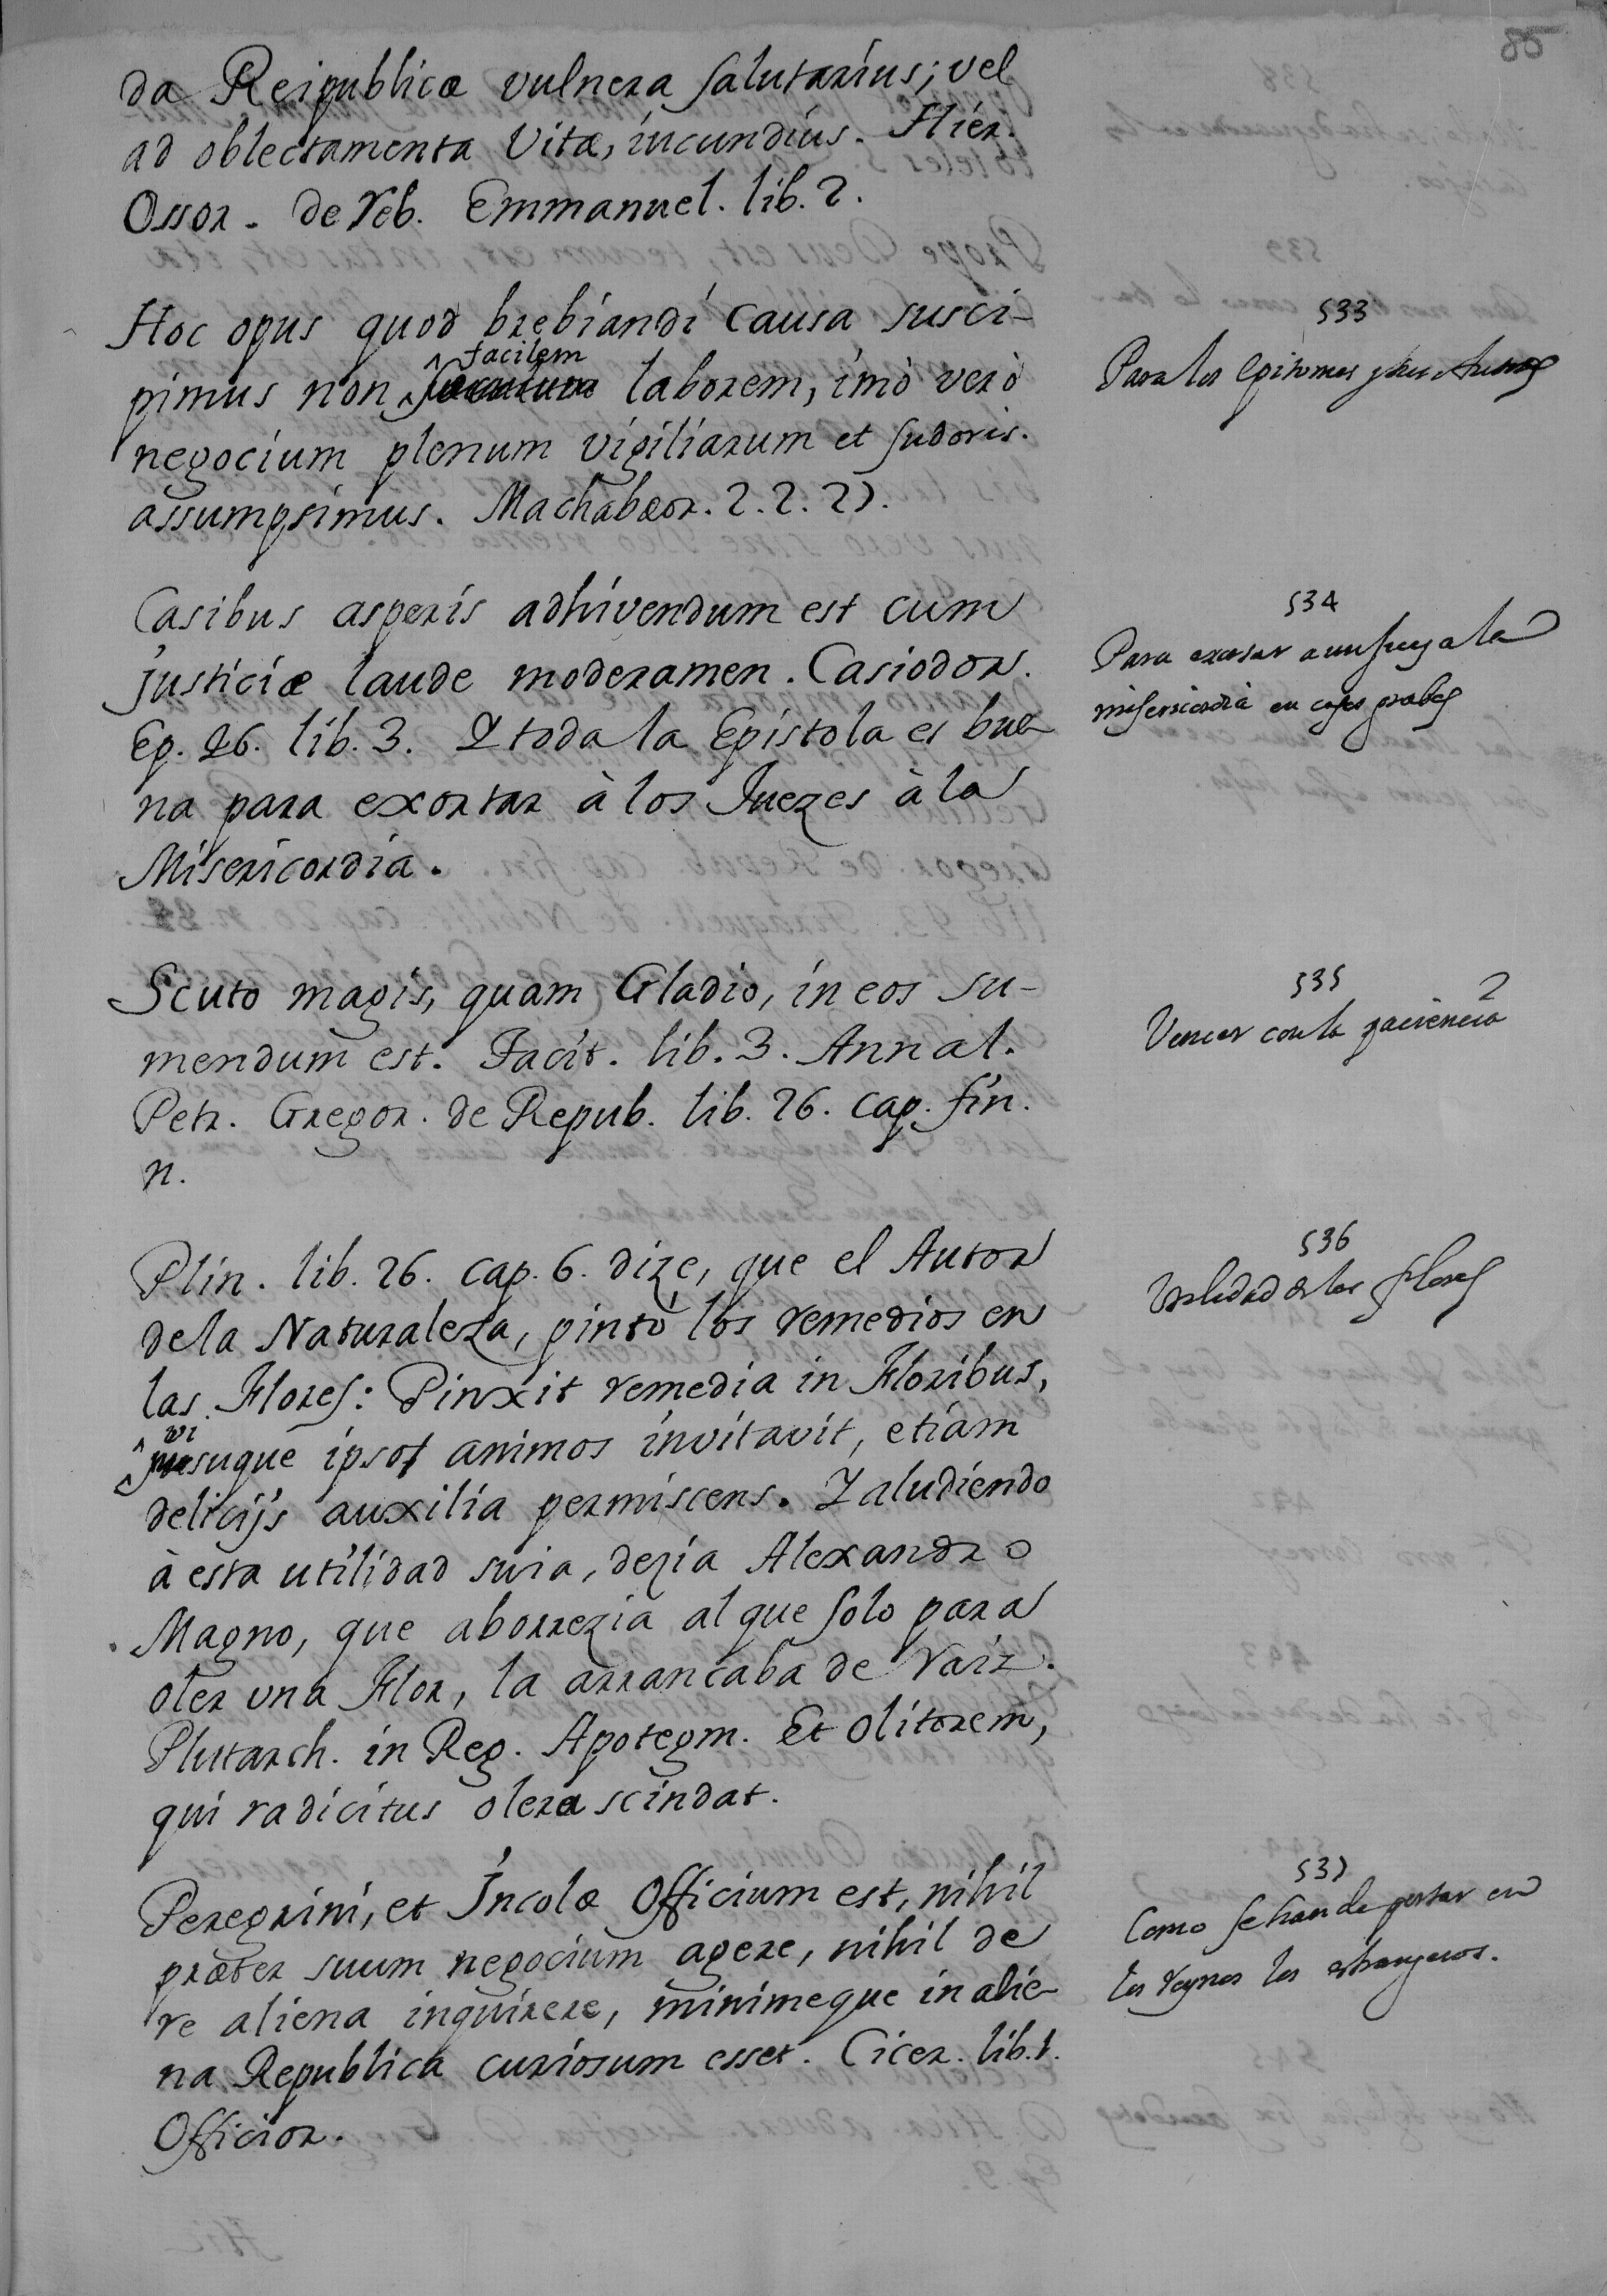 85
da Reipublicæ vulnera salutarius; vel
ad oblectamenta Vitæ, iucundius. Hier.
Ossor. de reb. Emmanuel. lib. 2.
Hoc opus quod brebiandi causa susci-
533
pimus non facilem laborem, imò verò
Para los Epitomes y sus
negocium plenum vigiliarum et sudoris.
assumpsimus. Machabæor. 2. 2. 27.
Casibus asperis adhivendum est cum
534
justiciæ laude moderamen. Casiodor.
Para exortar a un Juez a la
Ep. 46. lib. 3. Y toda la Epistola es bue-
misericordia en casos grabes
na para exortar à los Juezes à la
Misericordia.
Scuto magis, quam Gladio, in eos su-
535
mendum est. Tacit. lib. 3. Annal.
Vencer con la paciencia
Petr. Gregor. de Repub. lib. 26. cap. fin.
n.
Plin. lib. 26. cap. 6. dize, que el Autor
536
de la Naturaleza, pintò los remedios en
Utilidad de las flores
las Flores: Pinxit remedia in Floribus,
visuque ipso animos invitavit, etiam
delicijs auxilia permiscens. Y aludiendo
à esta utilidad suia, dezia Alexandro
Magno, que aborrezia al que solo para
oler una Flor, la arrancaba de raiz.
Plutarch. in Reg. Apotegm. Et olitorem,
qui radicitus olera scindat.
Peregrini, et Incolæ Officium est, nihil
537
præter suum negocium agere, nihil de
Como se han de portar en
re aliena inquirere, minimeque in alie-
los Reynos los estrangeros.
na Republica curiosum esset. Cicer. lib. 1.
Officior.